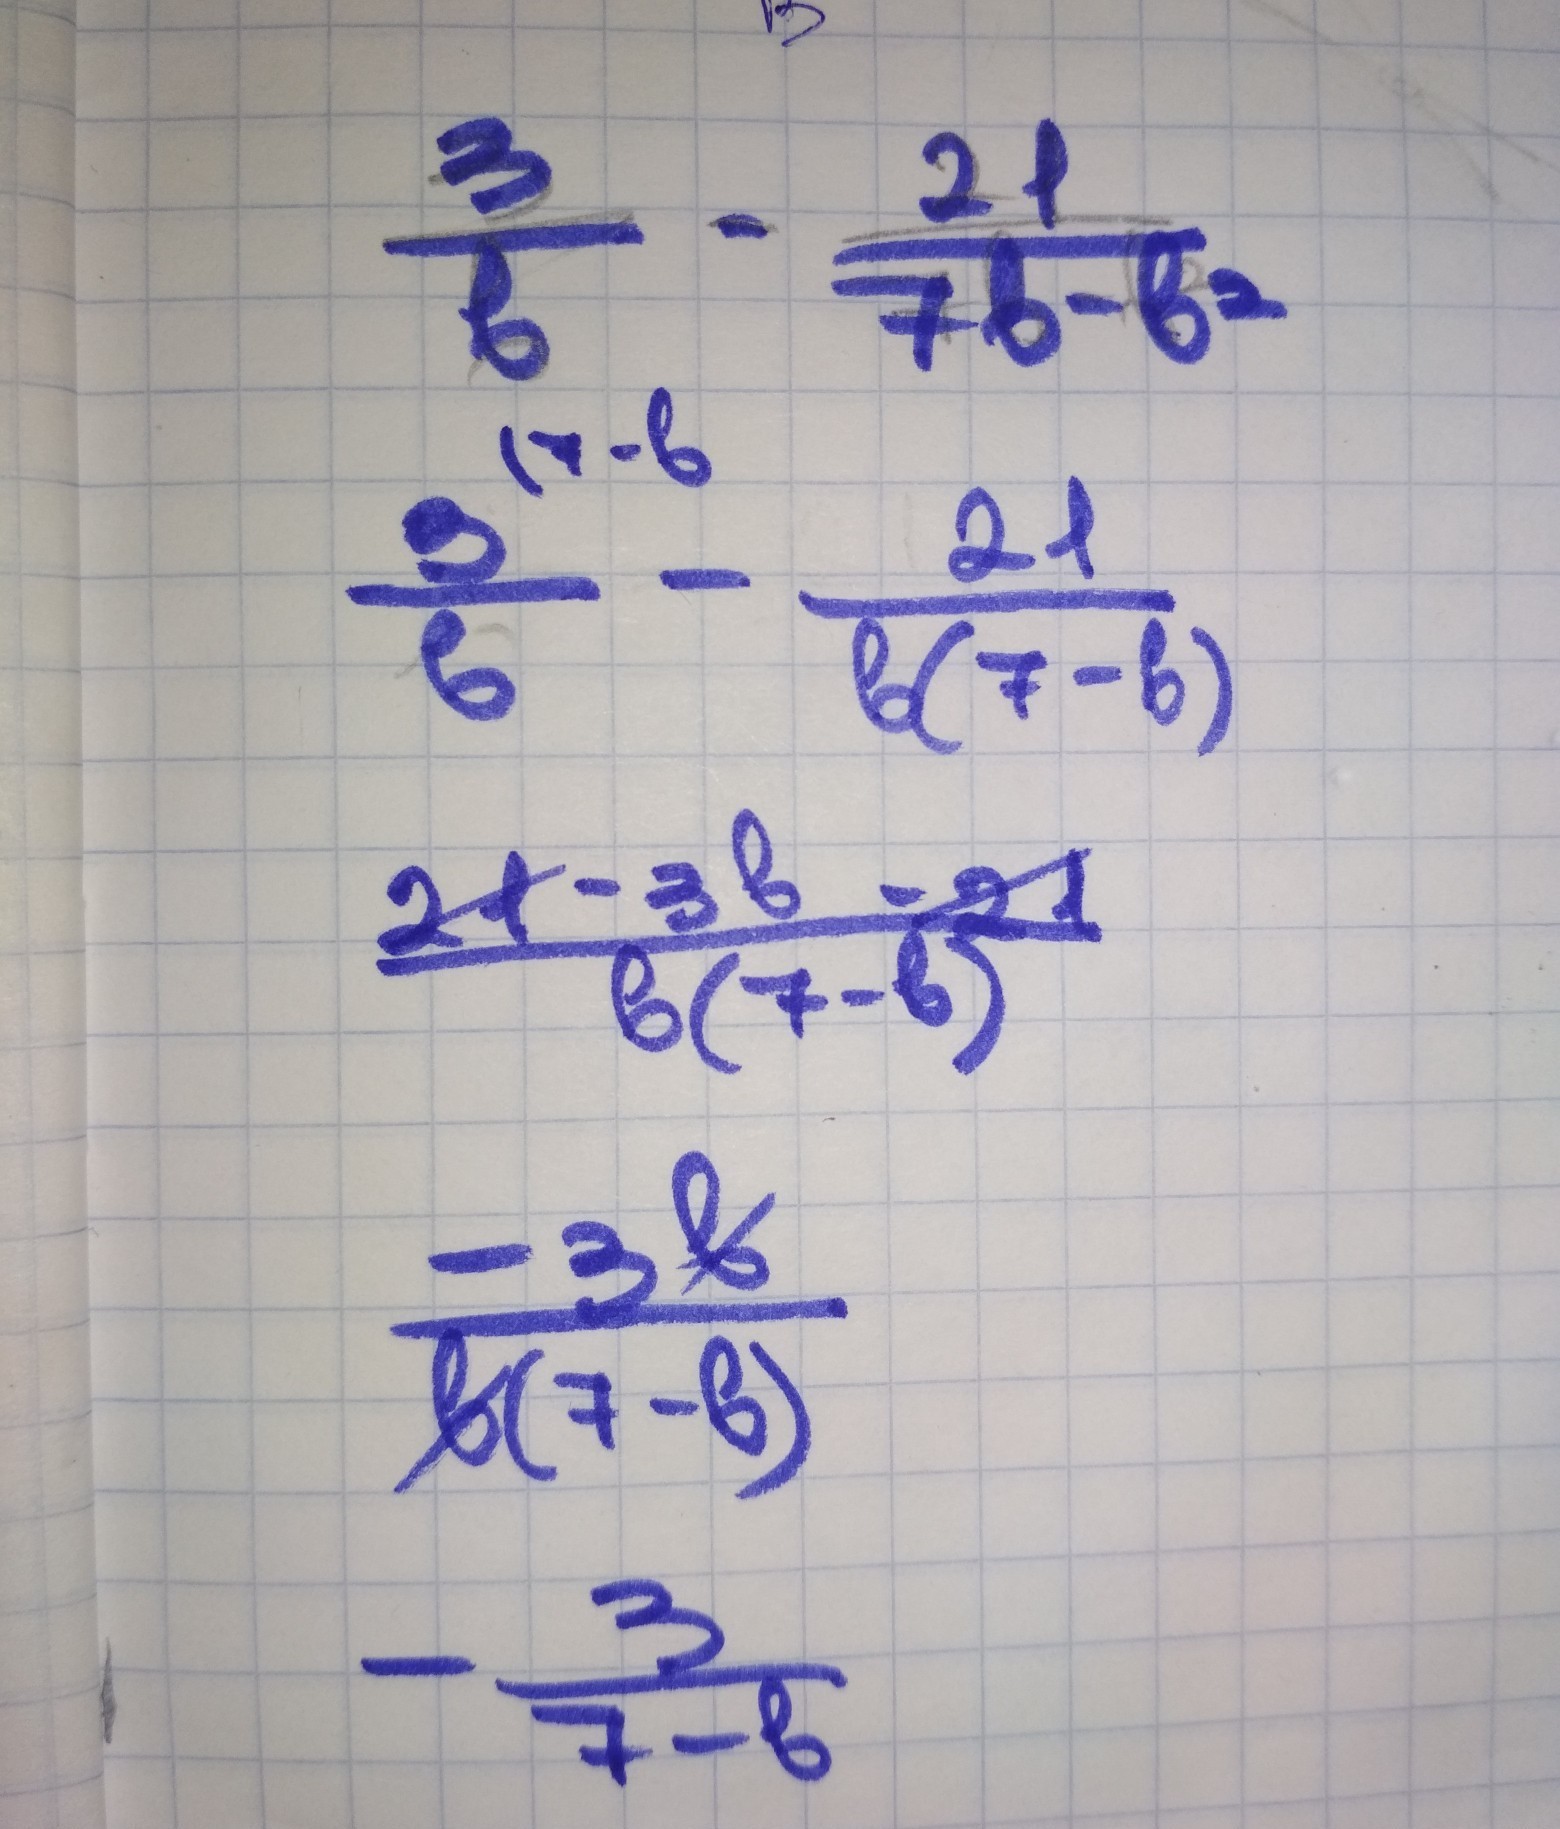 3/b - 21/7b-b²
(7-b
3/b - 21/b(7-b)
21-3b-21/b(7-b)
-3b/b(7-b)
- 3/7-b